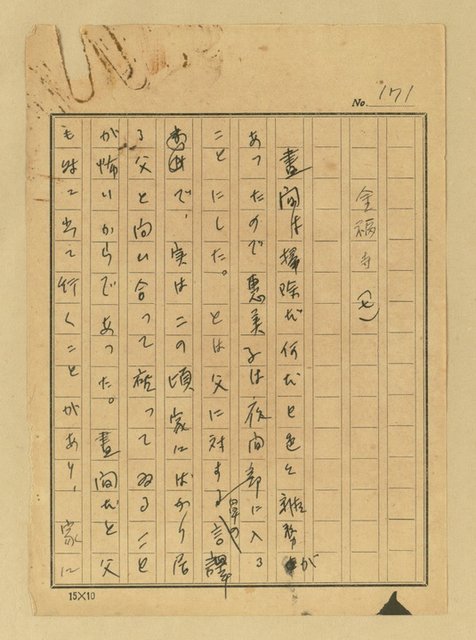 No. 171
金福寺(七)
晝間は掃除だ何だと色々雑務が
あつたので惠美子は夜間部に入る
ことにした。とは父に対する単の言譯
で、実はこの頃家にばかり居
る父と向い合って坐ってゐること
が怖いからであった。晝間だと父
も外に出て行くことがあり、家に
15×10